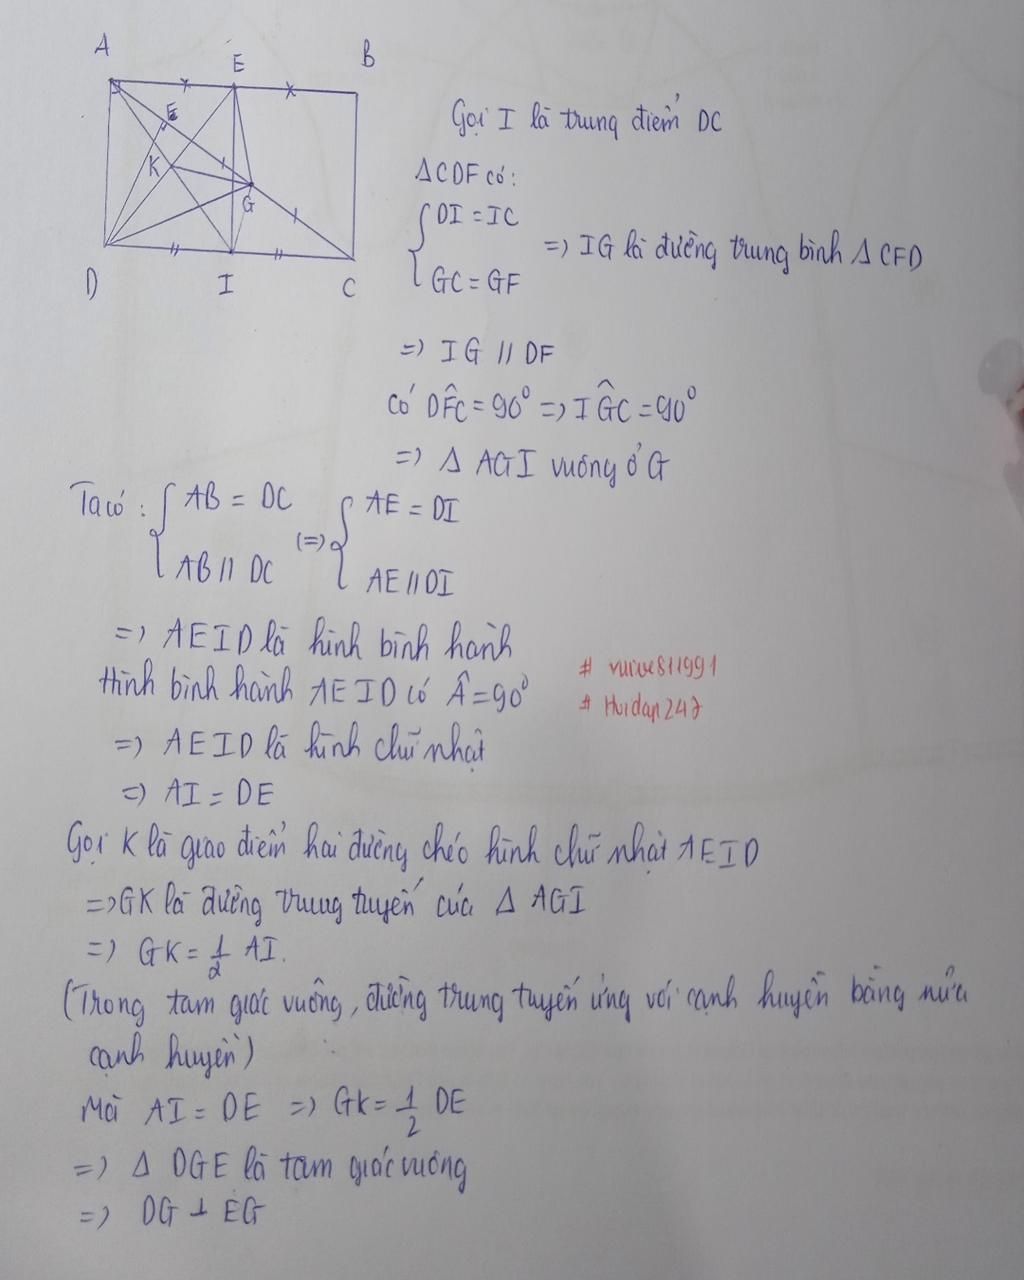 A E B
E
K
G
D I C
Gọi I là trung điểm DC
ΔCDF có:
{ DI = IC
{ GC = GF
=> IG là đường trung bình Δ CFD
=> IG // DF
Có DF̂C = 90° => IĜC = 90°
=> Δ AGI vuông ở G
Ta có : { AB = DC (=>) { AE = DI
{ AB // DC { AE // DI
=> AEID là hình bình hành
Hình bình hành AEID có Â = 90°
=> AEID là hình chữ nhật
=> AI = DE
# Huidap247
Gọi K là giao điểm hai đường chéo hình chữ nhật AEID
=> GK là đường trung tuyến của Δ AGI
=> GK = 1/2 AI.
(Trong tam giác vuông, đường trung tuyến ứng với cạnh huyền bằng nửa
cạnh huyền)
Mà AI = DE => GK = 1/2 DE
=> Δ DGE là tam giác vuông
=> DG ⊥ EG